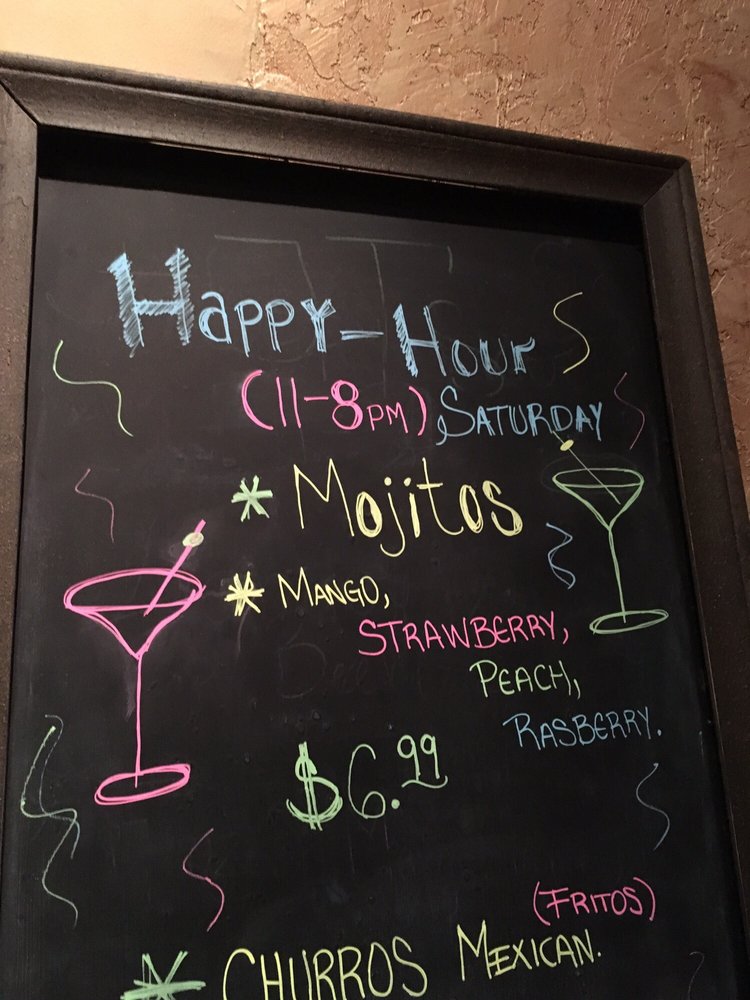 Happy-Hour
(11-8PM) SATURDAY
* Mojitos
* MANGO,
STRAWBERRY,
PEACH,
RASBERRY.
$6.99
(FRITOS)
* CHURROS MEXICAN.